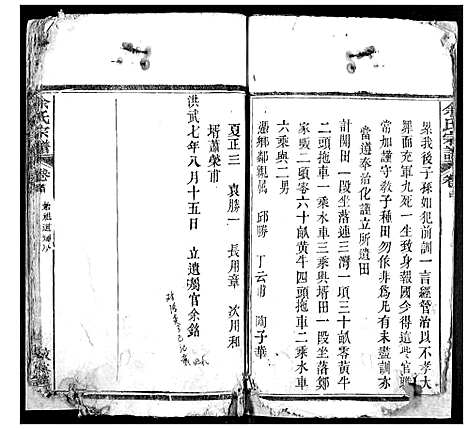 余氏宗譜 卷首
累我後子孫如犯前訓一言經管治以不孝大
罪面充軍九死一生致身報國少得這些官職
常加謹守教子種田勿係非為凡有未盡訓亦
當道奉治化謹立所遺田
計開田一段坐落連三灣一項三十畝零黃牛
二頭拖車一乘水車三乘與壻田一段坐落鄒
家畈二頭零六十畝黃牛四頭拖車二乘水車
六乘與二男
憑鄉鄰親屬 邱勝 丁云甫 陶子華
夏正三 袁勝一 長用章 次川和
壻蕭榮甫
洪武七年八月十五日 立遺囑官余銘
余氏宗譜 卷首